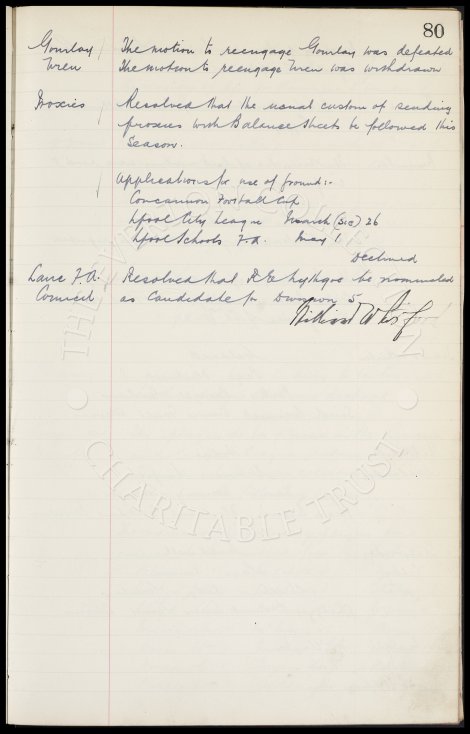 80
Gourlay / The motion to reengage Gourlay was defeated
Wren The motion to reengage Wren was withdrawn
Proxies / Resolved that the usual custom of sending
proxies with Balance Sheets be followed this
Season.
/ Applications for use of ground:-
Concannon Football Cup
Lpool City League March (sic) 26
Lpool Schools F.A. May 1
Declined
Lanc F.A. Resolved that be nominated
Council as Candidate for Division 5
THE EVERTON
CHARITABLE TRUST